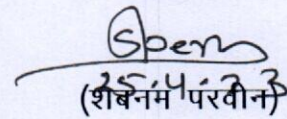 25.4.23
(शबनम परवीन)